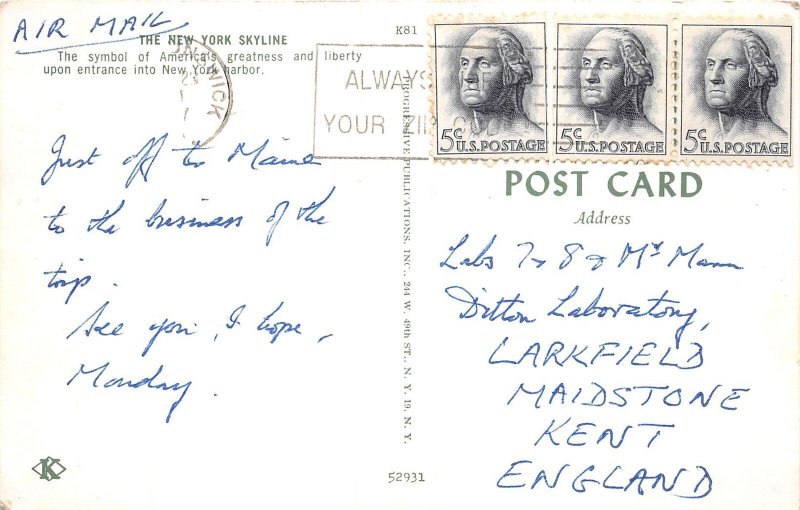 AIR MAIL
THE NEW YORK SKYLINE
The symbol of America's greatness and liberty
upon entrance into New York harbor.
K81
NSWICK
ALWAYS
YOUR ZIP CODE
5c U.S. POSTAGE
5c U.S. POSTAGE
5c U.S. POSTAGE
Just off to Maine
to the business of the
trip.
See you, I hope,
Monday.
PROGRESSIVE PUBLICATIONS, INC., 244 W. 49th ST., N. Y. 19, N. Y.
POST CARD
Address
Labs 7 & 8 & Mr Mann
Ditton Laboratory,
LARKFIELD
MAIDSTONE
KENT
ENGLAND
K
52931